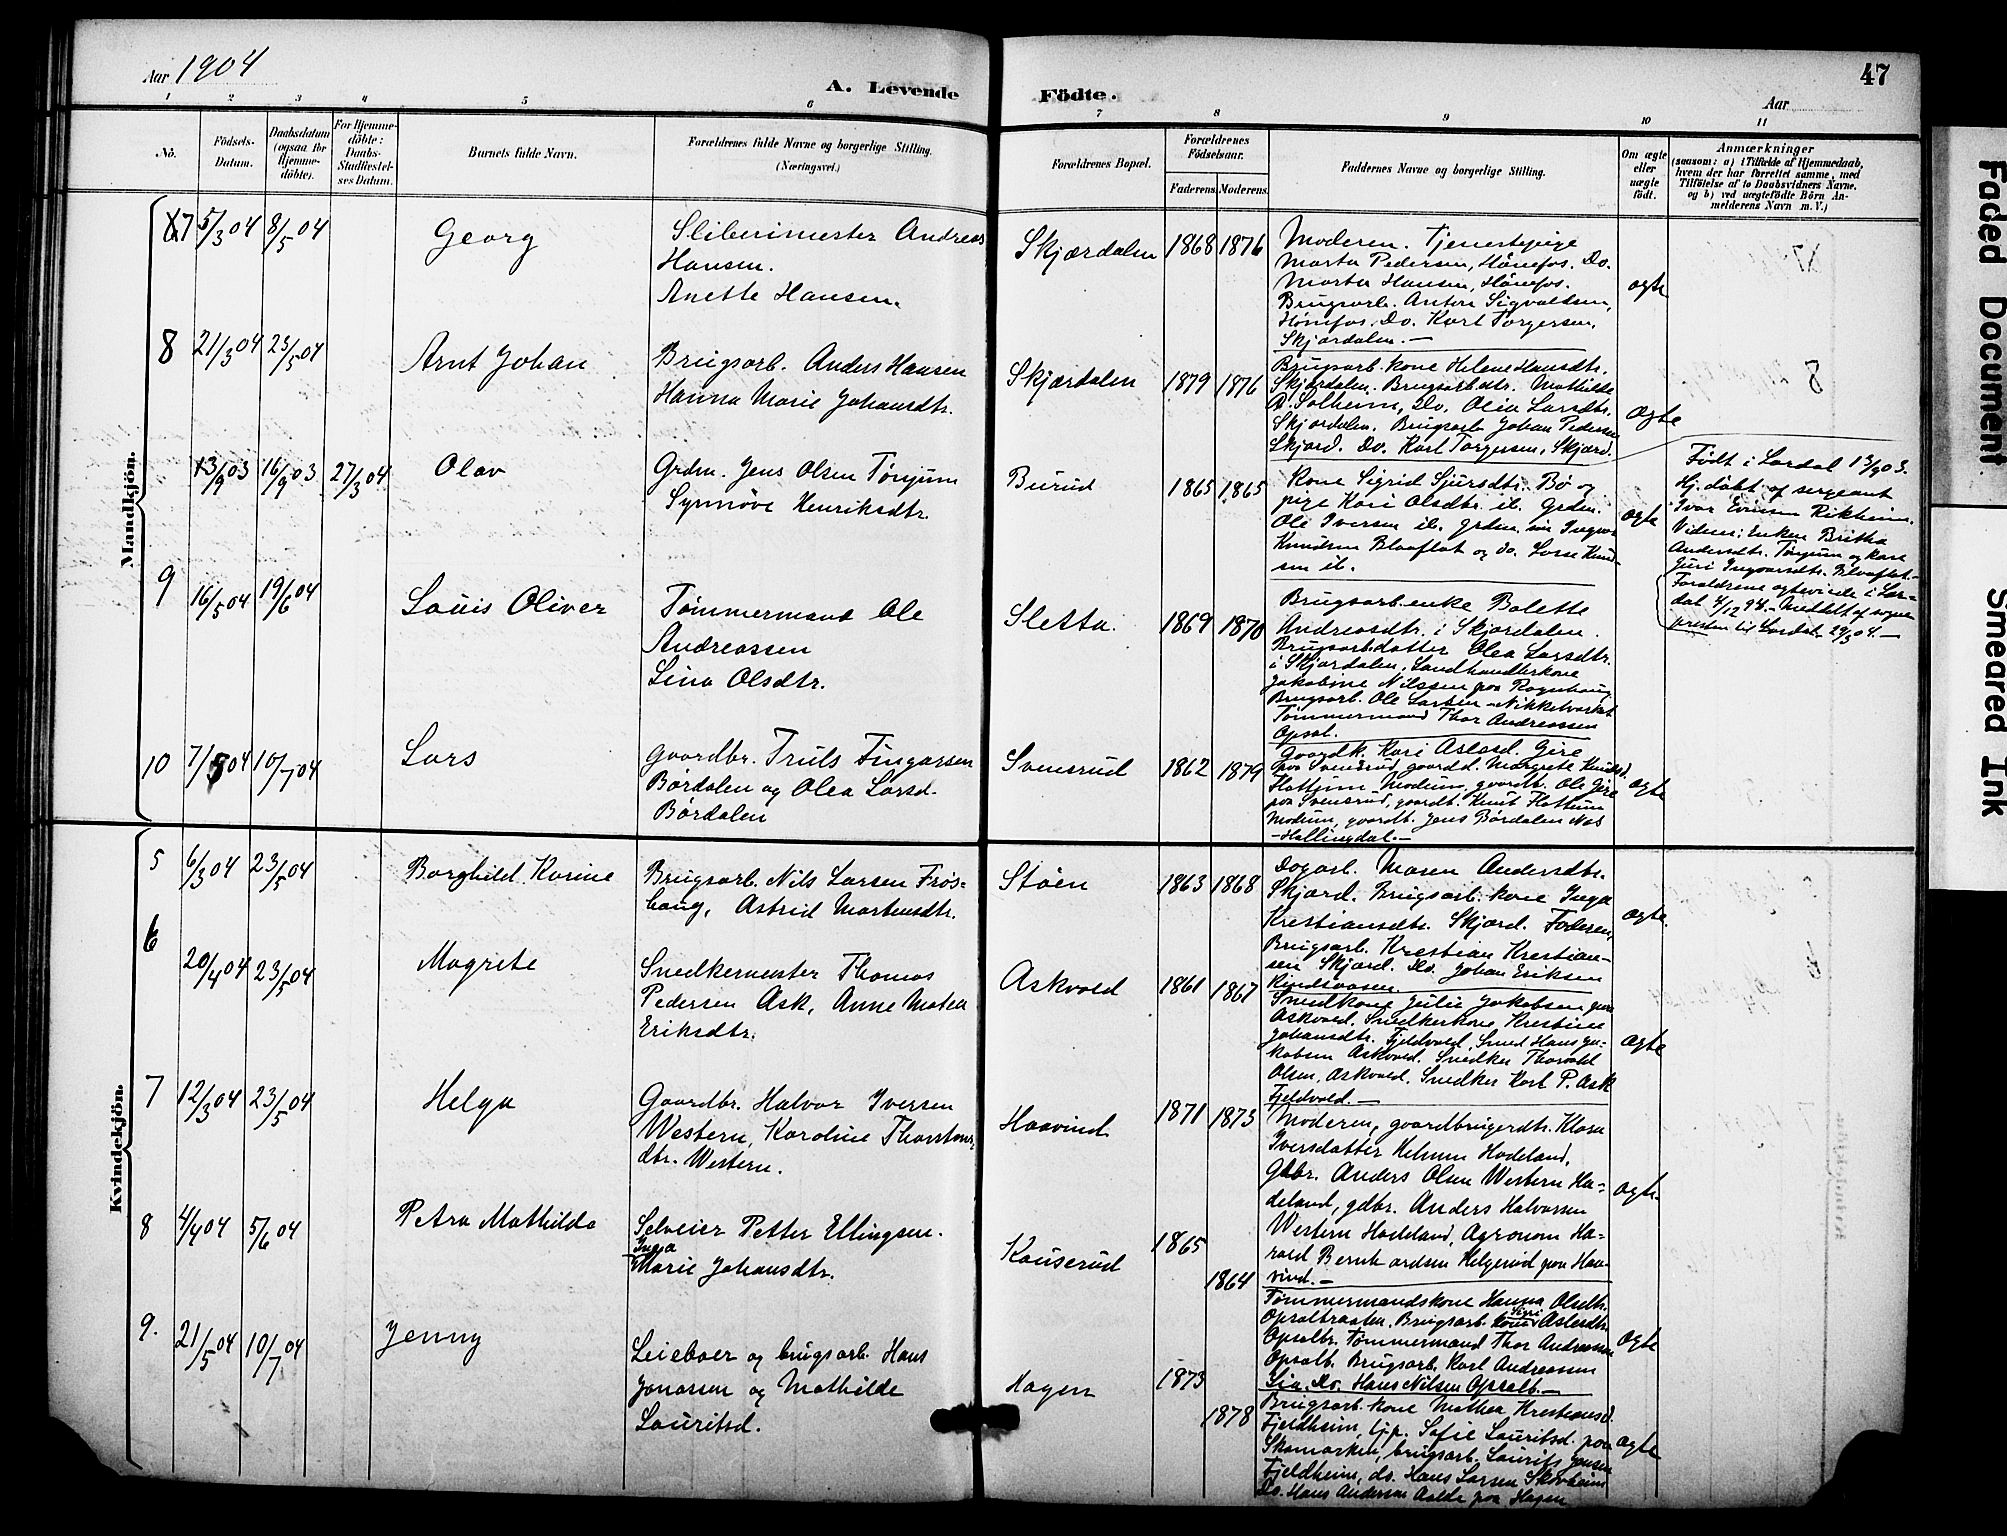 Aar 1904
A. Levende Födte.
47
Aar
1 2 3 4 5 6 7 8 9 10 11
No.
Födsels-Datum.
Daabsdatum (ogsaa for Hjemmedöbte).
For Hjemmedöbte: Daabs-Stadfæstelses Datum.
Barnets fulde Navn.
Forældrenes fulde Navne og borgerlige Stilling.
(Næringsvei.)
Forældrenes Bopæl.
Forældrenes Födselsaar.
Faderens. Moderens.
Faddernes Navne og borgerlige Stilling.
Om ægte eller uægte födt.
Anmærkninger
(saasom: a) i Tilfælde af Hjemmedaab, hvem der har forrettet samme, med Tilföielse af to Daabsvidners Navne, og b) ved uægtefödte Börn Anmelderens Navn m. V.)
Mandkjön.
7 5/3 04 8/5 04 Georg
Sliberimester Andreas
Hansen.
Anette Hansen.
Skjærdalen 1868 1876
Moderen. Tjenestepige
Marta Pedersen, Hönefos. Do.
Martha Hansen, Hönefos.
Brugsarb. Anton Sigvaldsen,
Hönefos. Do. Karl Torgersen,
Skjærdalen. —
ægte
8 21/3 04 23/5 04 Arnt Johan
Brugsarb. Anders Hansen
Hanna Marie Johansdtr.
Skjærdalen 1879 1876
Brugsarb. kone Helene Hansdtr.
Skjærdalen. Brugsarbdtr. Mathilde
A. Solheim, Do. Olea Larsdtr.
Skjærdalen. Brugsarb. Johan Pedersen
Skjærd. Do. Karl Torgersen, Skjærd.
ægte
13/9 03 16/9 03 27/3 04 Olav
Grdm. Jens Olsen Tönjum
Synnöve Henriksdtr.
Burud 1865 1865
Kone Sigrid Sjursdtr. Bö og
pige Kari Olsdtr. ib. Grdm.
Ole Iversen ib. grdm. sön Ingvar
Knudsen Blaaflat og do. Lasse Knud-
sen ib.
ægte
Födt i Lærdal 13/9 03.
Hj. döbt af sergeant
Ivar Evinsen Rikheim.
Vidner: Enken Britha
Andersdtr. Tönjum og kone
Guri Ingvarsdtr. Blaaflat.
Forældrene ægteviede i Lær-
dal 4/12 94. Meddelt af sogne
presten til Lærdal 29/3 04. —
9 16/5 04 19/6 04 Louis Oliver
Tömmermand Ole
Andreassen
Lina Olsdtr.
Sletta. 1869 1870
Brugsarb. enke Bolette
Andreasdtr. i Skjærdalen.
Brugsarb. datter Olea Larsdtr.
i Skjærdalen, Landhandlerkone
Jakobine Nilssen paa Rogenhaug,
Brugsarb. Ole Larsen Nikkelverket
Tömmermand Thor Andreassen
Opsal.
10 7/5 04 10/7 04 Lars
Gaardbr. Truls Fingarsen
Bördalen og Olea Larsd.
Bördalen
Svensrud 1862 1879
Gaardk. Kari Aslasd. Gire
paa Svensrud, gaardd. Margrete Knudsd.
Flattum Modum, gaardbr. Ole Gire
paa Svensrud, gaardb. Knut Flattum
Modum, gaardb. Jens Bördalen Næs
- Hallingdal. —
ægte
Kvindekjön.
5 6/3 04 23/5 04 Borghild Karine
Brugsarb. Nils Larsen Frös-
haug, Astrid Mortensdtr.
Stöen 1863 1868
Dagarb. Maren Andersdtr.
Skjærd. Brugsarb. kone Inga
Krestiansdtr. Skjærd. Faderen,
Brugsarb. Krestian Krestian-
sen Skjærd. Do. Johan Eriksen
ægte
6 20/4 04 23/5 04 Magrete
Snedkermester Thomas
Pedersen Ask, Anne Matea
Eriksdtr.
Askvold 1861 1867
Smedkone Julie Jakobsen paa
Askvold, Snedkerkone Krestine
Johansdtr. Fjeldvold, Smed Hans Ja-
kobsen Askvold. Snedker Thorvald
Olsen, Askvold, Snedker Karl P. Ask
Fjeldvold. —
ægte
7 12/3 04 23/5 04 Helga
Gaardbr. Halvor Iversen
Western, Karoline Thorstens-
dtr. Western.
Haavind 1871 1873
Moderen, gaardbrugerdtr. Klara
Iversdatter Helmen Hadeland,
Gbr. Anders Olsen Western Ha-
deland, gdbr. Anders Halvorsen
Western Hadeland, Agronom Ha-
rald Berntsen Helgerud paa Haa-
vind. —
ægte
8 4/4 04 5/6 04 Petra Mathilde
Selveier Petter Ellingsen.
Inga
Marie Johansdtr.
Kauserud 1865 1864
Tömmermandskone Hanna Olsdtr.
Opsalbraaten, Brugsarb. kone Siri Aslesdtr.
Opsalbr. Tömmermand Thor Andreassen
Opsalb. Brugsarb. Karl Andreassen
Lia. Do. Hans Nilsen Opsalb. —
ægte
9. 21/5 04 10/7 04 Jenny
Leieboer og brugsarb. Hans
Jonassen og Mathilde
Lauritsd.
Hagen 1873 1878
Brugsarb. kone Mathea Krestiansd.
Fjeldheim, tj.p. Sofie Lauritsd. paa
Skamarken, brugsarb. Laurits Jensen
Fjeldheim, do. Hans Larsen Skovheim
Do. Hans Andersen Aalde paa Hagen
ægte
Faded Document.
Smeared Ink